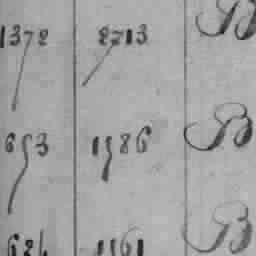 1372 2713 B
653 1586 B
684 1161 B